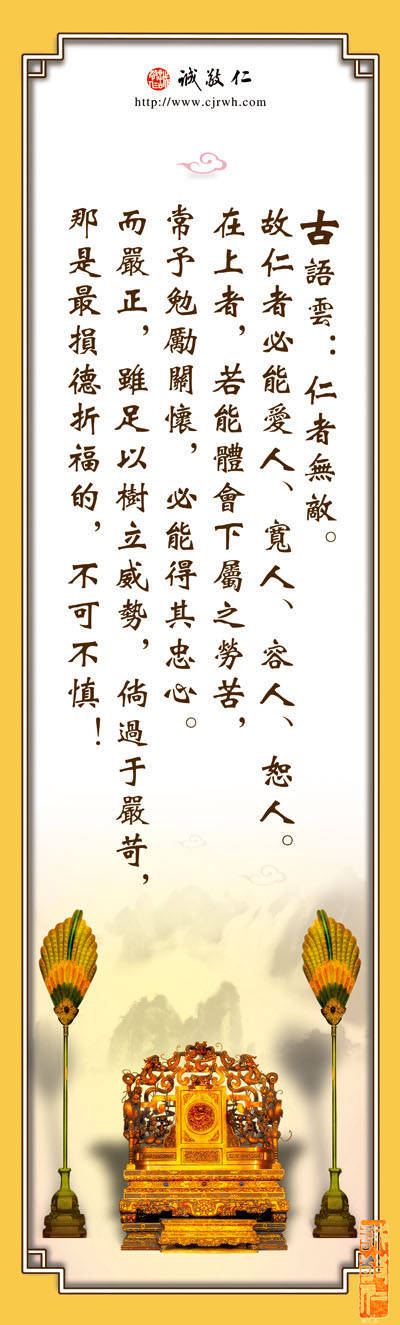 誠敬仁
http://www.cjrwh.com
古語雲：仁者無敵。
故仁者必能愛人、寬人、容人、恕人。
在上者，若能體會下屬之勞苦，
常予勉勵關懷，必能得其忠心。
而嚴正，雖足以樹立威勢，倘過于嚴苛，
那是最損德折福的，不可不慎！